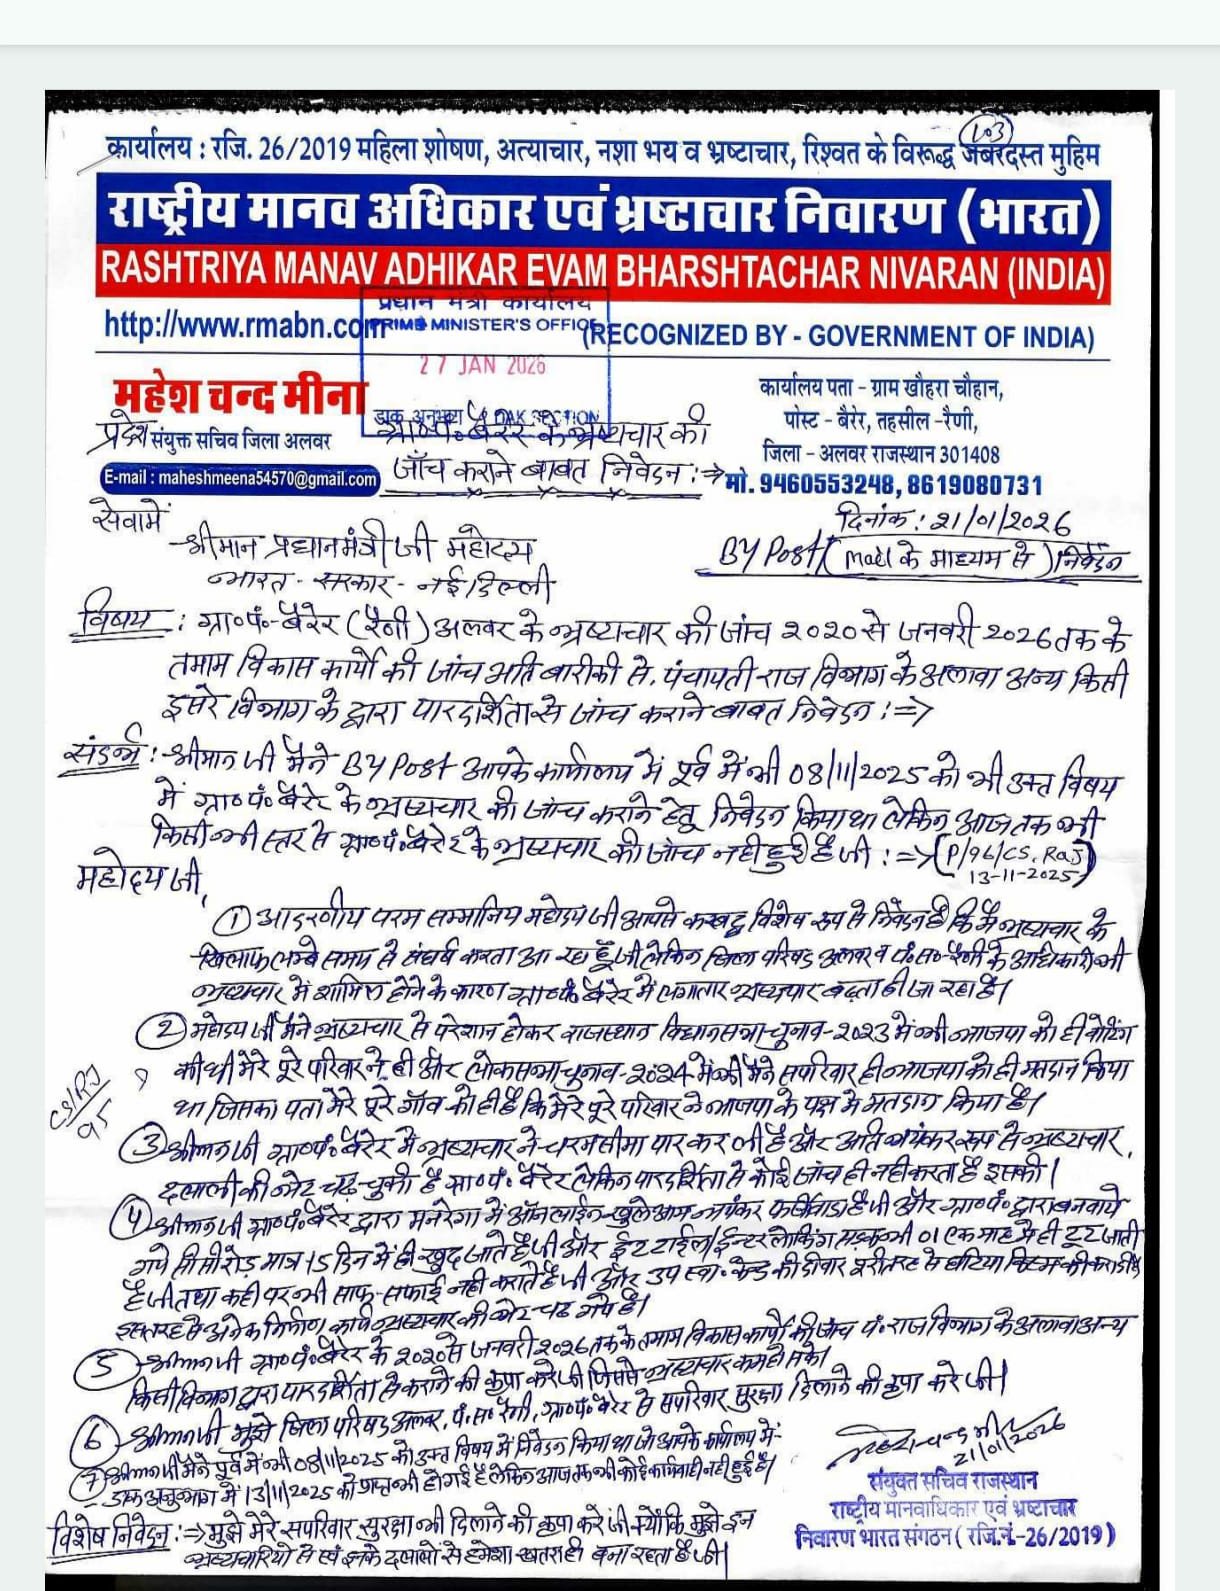 103
कार्यालय : रजि. 26/2019 महिला शोषण, अत्याचार, नशा भय व भ्रष्टाचार, रिश्वत के विरूद्ध जबरदस्त मुहिम
राष्ट्रीय मानव अधिकार एवं भ्रष्टाचार निवारण (भारत)
RASHTRIYA MANAV ADHIKAR EVAM BHARSHTACHAR NIVARAN (INDIA)
प्रधान मंत्री कार्यालय
http://www.rmabn.com PRIME MINISTER'S OFFICE (RECOGNIZED BY - GOVERNMENT OF INDIA)
27 JAN 2026
महेश चन्द मीना
डाक अनुभाग DAK SECTION
कार्यालय पता - ग्राम खौहरा चौहान,
पोस्ट - बैरेर, तहसील - रैणी,
प्रदेश संयुक्त सचिव जिला अलवर
ग्रा०पं० बैरेर के भ्रष्टाचार की
जिला - अलवर राजस्थान 301408
E-mail : maheshmeena54570@gmail.com
जाँच कराने बाबत निवेदन :⇒
मो. 9460553248, 8619080731
सेवामें
दिनांक : 21/01/2026
श्रीमान प्रधानमंत्री जी महोदय
BY Post (Mail के माध्यम से) निवेदन
भारत - सरकार - नई दिल्ली
विषय : ग्रा०पं०-बैरेर (रैणी) अलवर के भ्रष्टाचार की जांच 2020 से जनवरी 2026 तक के
तमाम विकास कार्यो की जांच अति बारीकी से, पंचायती राज विभाग के अलावा अन्य किसी
दूसरे विभाग के द्वारा पारदर्शिता से जांच कराने बाबत निवेदन :⇒
संदर्भ : श्रीमान जी मैने BY Post आपके कार्यालय में पूर्व में भी 08/11/2025 को भी उक्त विषय
में ग्रा०पं० बैरेर के भ्रष्टाचार की जांच कराने हेतू निवेदन किया था लेकिन आज तक भी
किसी भी स्तर से ग्रा०पं० बैरेर के भ्रष्टाचार की जांच नही हुई है जी :⇒ (P/96/CS. Raj
13-11-2025)
महोदय जी,
① आदरणीय परम सम्मानिय महोदय जी आपसे करबद्द विशेष रूप से निवेदन है कि मै भ्रष्टाचार के
खिलाफ लम्बे समय से संघर्ष करता आ रहा हूँ जी लेकिन जिला परिषद अलवर व पं० स० रैणी के अधिकारी भी
भ्रष्टाचार में शामिल होने के कारण ग्रा०पं० बैरेर में लगातार भ्रष्टाचार बढ़ता ही जा रहा है।
② महोदय जी मैने भ्रष्टाचार से परेशान होकर राजस्थान विधानसभा चुनाव-2023 में भी भाजपा को ही वोटिंग
की थी मेरे पूरे परिवार ने ही और लोकसभा चुनाव-2024 में भी मैने सपरिवार ही भाजपा को ही मतदान किया
था जिसका पता मेरे पूरे गाँव को ही है कि मेरे पूरे परिवार ने भाजपा के पक्ष में मतदान किया है।
CS/RJ
95
③ श्रीमान जी ग्रा०पं० बैरेर में भ्रष्टाचार ने चरम सीमा पार कर ली है और अति भयंकर रूप से भ्रष्टाचार,
दलाली की भेट चढ़ चुकी है ग्रा०पं० बैरेर लेकिन पारदर्शिता से कोई जांच ही नही करता है इसकी।
④ श्रीमान जी ग्रा०पं० बैरेर द्वारा मनरेगा में ऑनलाईन खुलेआम भयंकर फर्जीवाडा है जी और ग्रा०पं० द्वारा बनवाये
गये सी सी रोड़ मात्र 15 दिन में ही खुद जाते है जी और ईट टाईल/ईन्टरलोकिंग सड़क भी 01 एक माह में ही टूट जाती
है जी तथा कही पर भी साफ-सफाई नही कराते है जी और उप स्वा. केन्द्र की दीवार पूरी तरह से घटिया किस्म की करा दी है
इस तरह से अनेक निर्माण कार्य भ्रष्टाचार की भेट चढ गये है।
⑤ श्रीमान जी ग्रा०पं० बैरेर के 2020 से जनवरी 2026 तक के तमाम विकास कार्यो की जांच पं. राज विभाग के अलावा अन्य
किसी विभाग द्वारा पारदर्शिता से कराने की कृपा करे जी जिससे भ्रष्टाचार कम हो सके।
⑥ श्रीमान जी मुझे जिला परिषद अलवर, पं. स० रैणी, ग्रा०पं० बैरेर से सपरिवार सुरक्षा दिलाने की कृपा करे जी।
⑦ श्रीमान जी मैने पूर्व में भी 08/11/2025 को उक्त विषय में निवेदन किया था जो आपके कार्यालय में-
डाक अनुभाग में 13/11/2025 को प्राप्त भी हो गई है लेकिन आज तक भी कोई कार्यवाही नही हुई है।
21/01/2026
विशेष निवेदन :⇒ मुझे मेरे सपरिवार सुरक्षा भी दिलाने की कृपा करे जी क्योंकि मुझे इन
भ्रष्टाचारियो से एवं इनके दलालों से हमेशा खतरा ही बना रहता है जी।
संयुक्त सचिव राजस्थान
राष्ट्रीय मानवाधिकार एवं भ्रष्टाचार
निवारण भारत संगठन ( रजि.नं.-26/2019 )